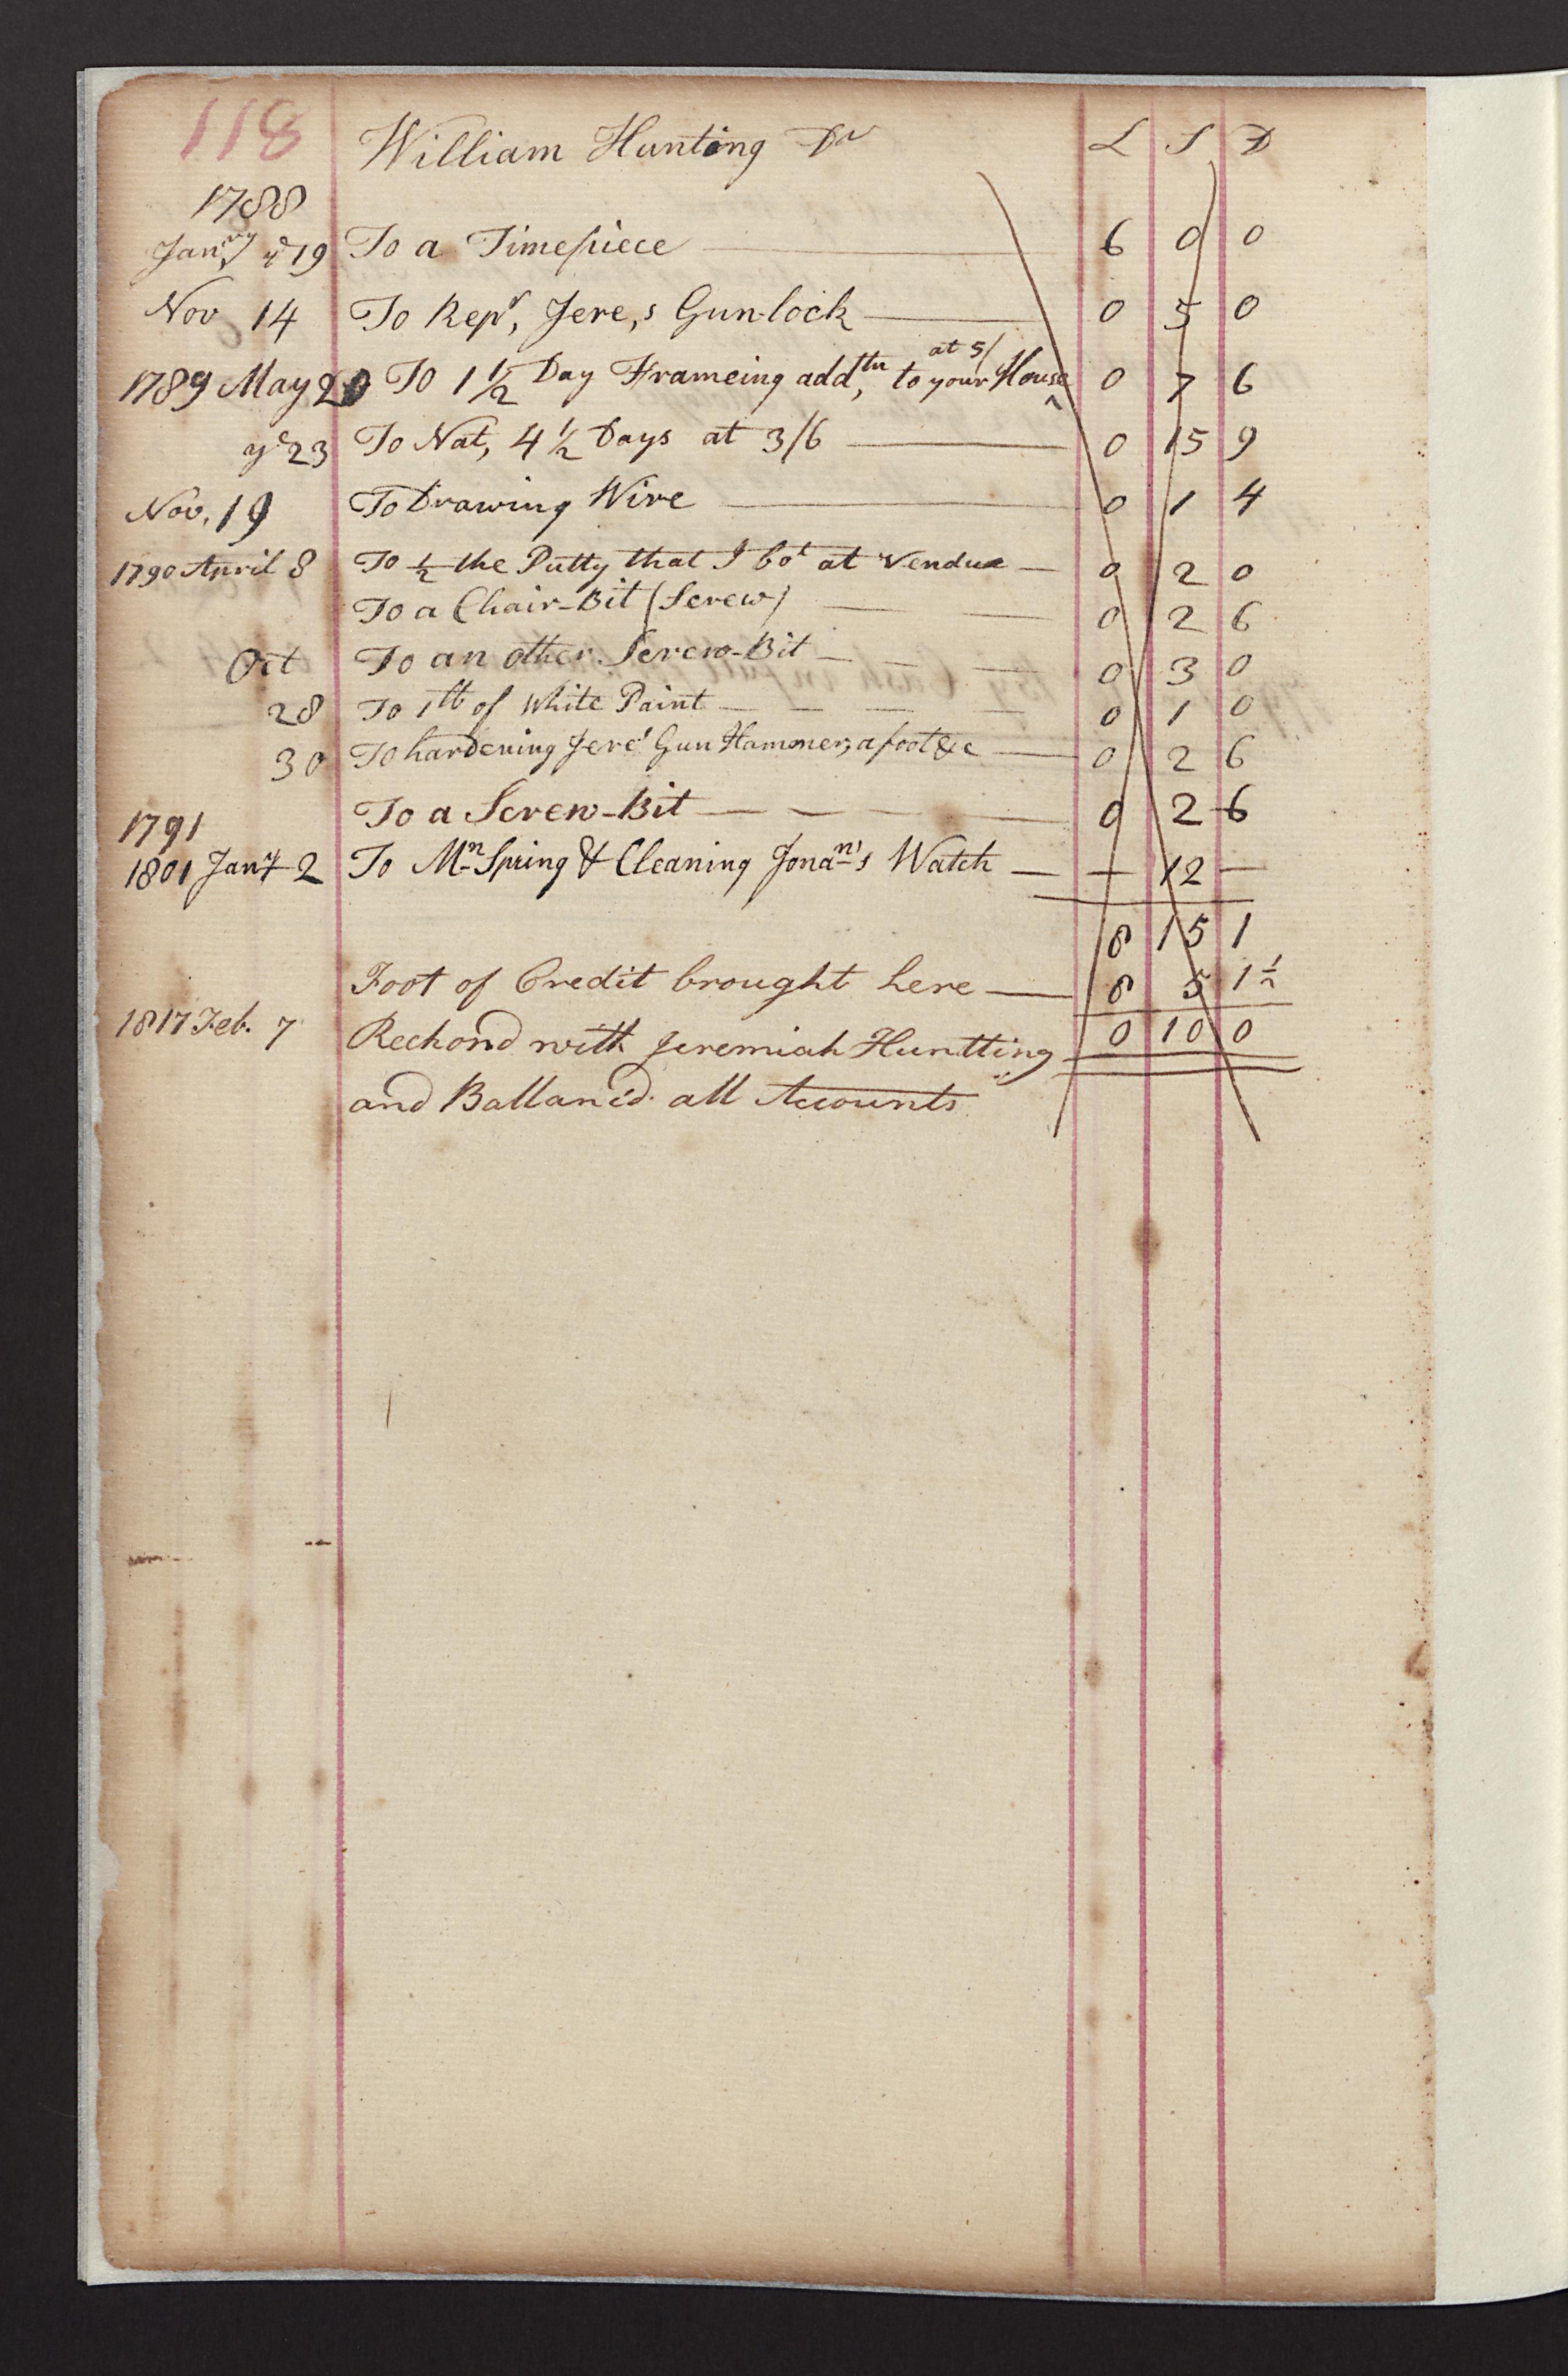 118 William Hunting Dr L S D
1788
Janry ye 19 To a Timepiece 6 0 0
Nov 14 To Repr, Jere,s Gun-lock 0 5 0
at 5/
1789 May 20 To 1 1/2 Day Frameing add,tn to your House ^ 0 7 6
ye 23 To Nat, 4 1/2 Days at 3/6 0 15 9
Nov. 19 To Drawing Wire 0 1 4
1790 April 8 To 1/2 the Putty that I bot at Vendue 0 2 0
To a Chair-Bit (Screw) 0 2 6
Oct To an other Screw-Bit 0 3 0
28 To 1 lb of White Paint 0 1 0
30 To hardening Jere' Gun Hammer, a foot &c 0 2 6
To a Screw-Bit 0 2 6
1791
1801 Jany 2 To Mn Spring & Cleaning Jonan's Watch — 12 —
8 15 1
Foot of Credit brought here 8 5 1 1/2
1817 Feb. 7 Reckond with Jeremiah Huntting 0 10 0
and Ballanc'd all Accounts